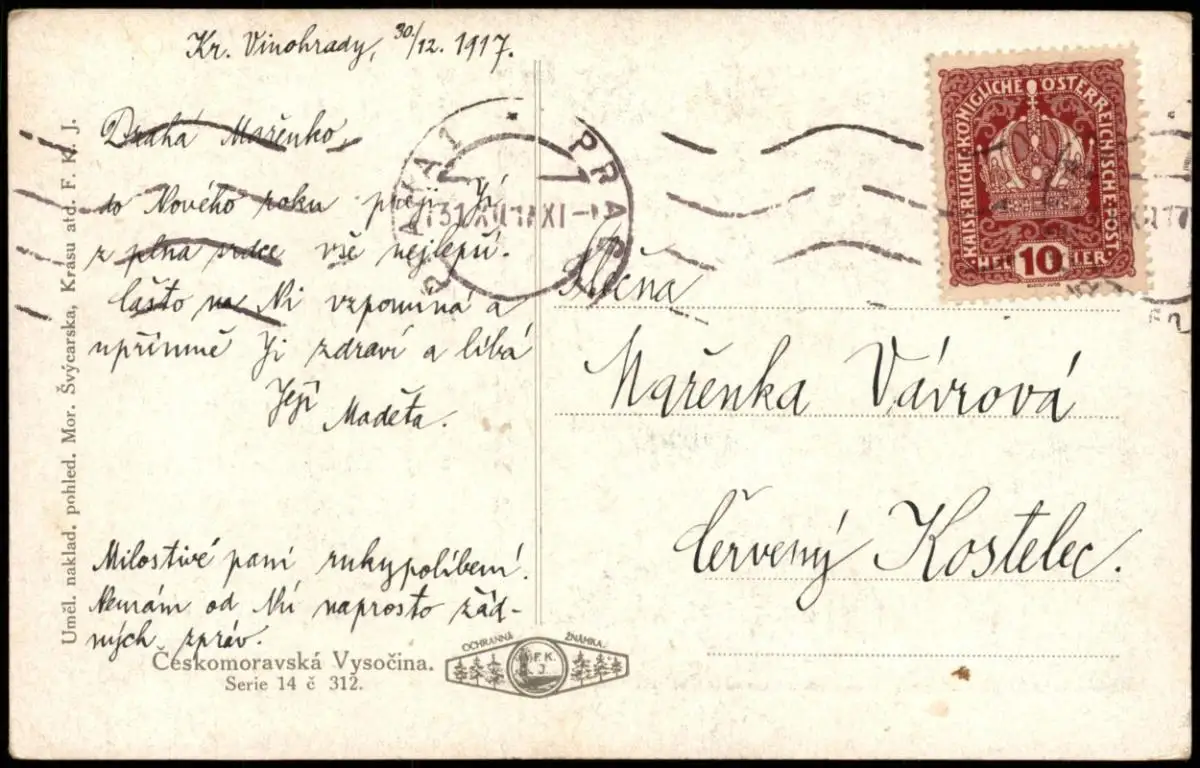 Kr. Vinohrady, 30/12. 1917.
Drahá Mařenko,
do Nového roku přeji Jí
z plna srdce vše nejlepší.
Často na Ni vzpomíná a
upřímně Ji zdraví a líbá
Její
Maděta.
Milostivé paní ruky políbení.
Nemám od Ní naprosto žád-
ných zpráv.
Českomoravská Vysočina.
Serie 14 č 312.
OCHRANNÁ ZNÁMKA.
F. K. J.
Uměl. naklad. pohled. Mor. Švýcarska, Krásu atd. F. K. J.
KAISERLICHE KÖNIGLICHE ÖSTERREICHISCHE POST
HELLER
10
PRAHA 1 * PRAG
31 XII 17 XI
Slečna
Mařenka Vávrová
Červený Kostelec.